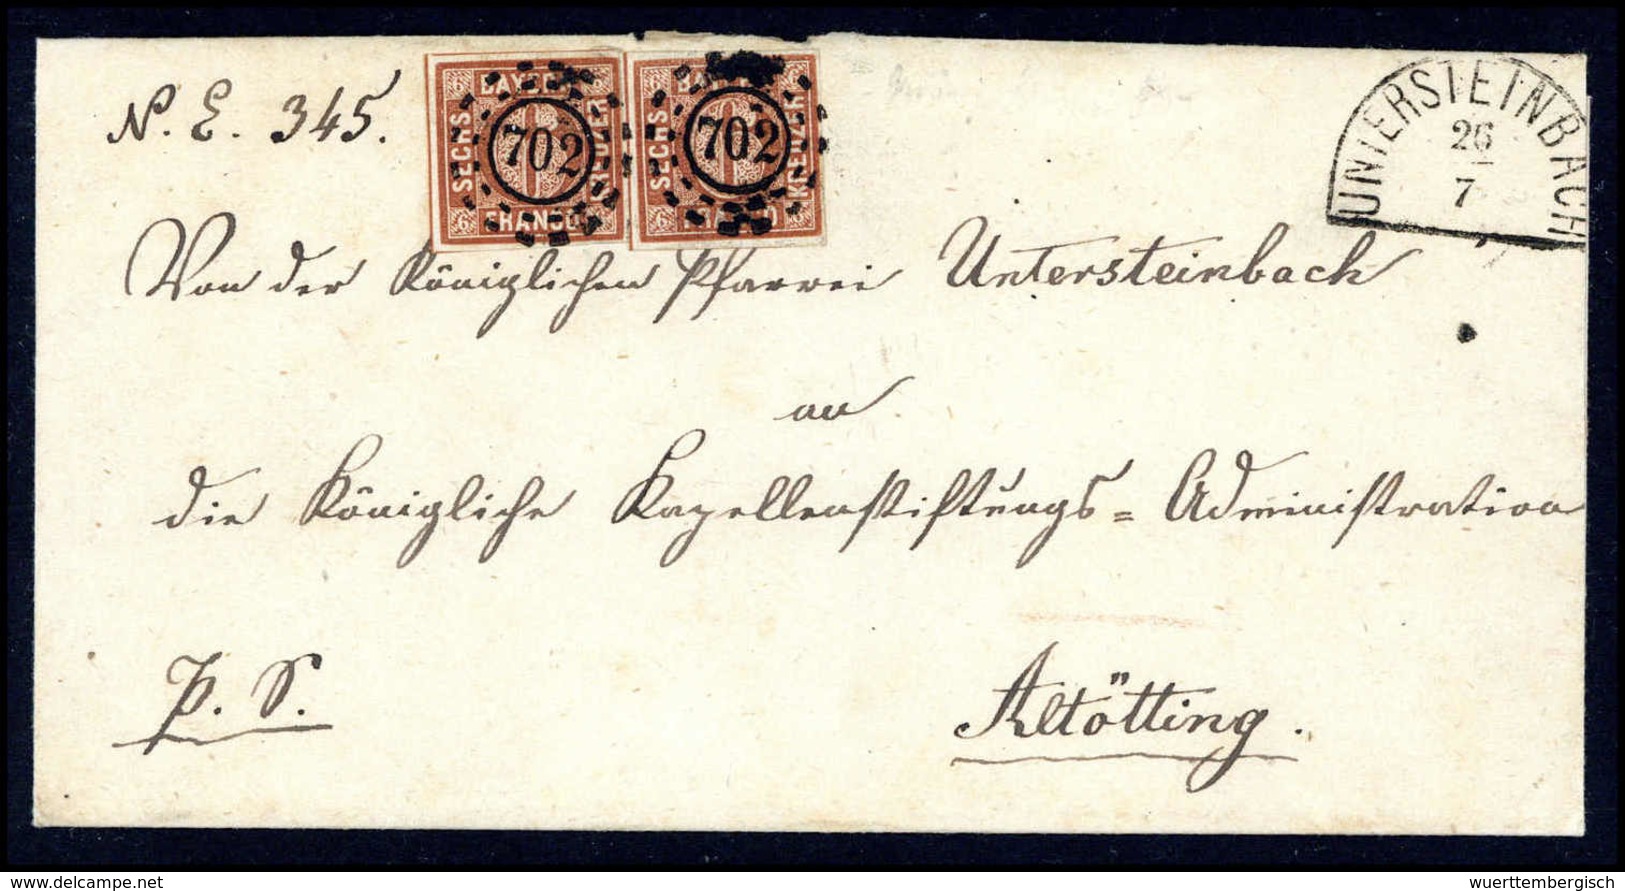 N. E. 345.
BAYERN
SECHS KREUZER
FRANCO
6
702
BAYERN
SECHS KREUZER
FRANCO
6
702
UNTERSTEINBACH
26
7
Von der Königlichen Pfarrei Untersteinbach
an
die Königliche Kapellenstiftungs = Administration
P. S.
Altötting.
© www.delcampe.net
wuerttembergisch